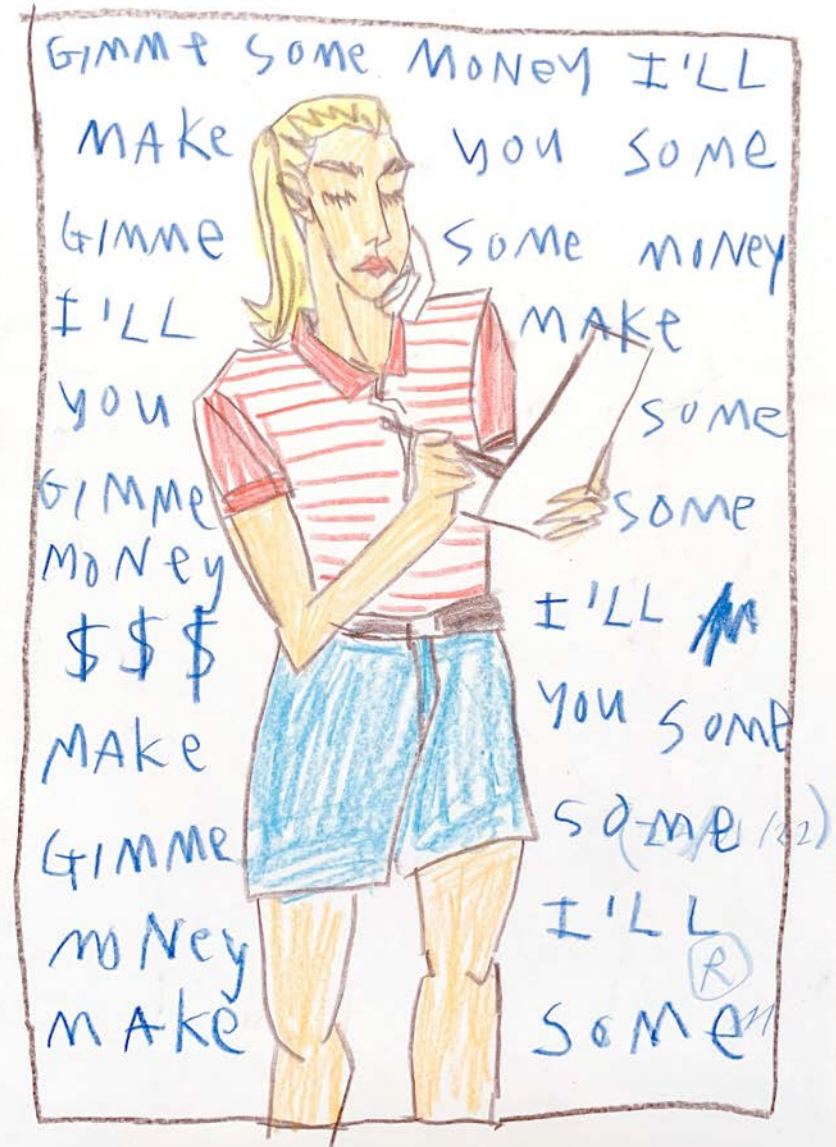 GIMMe SOMe MONey I'LL
MAKe you SOMe
GIMMe SOMe MONey
I'LL MAKe
you SOMe
GIMMe SOMe
MONey
$$$ I'LL
MAKe you SOMe
GIMMe SOMe
MONey I'LL
R
MAKe SOMe